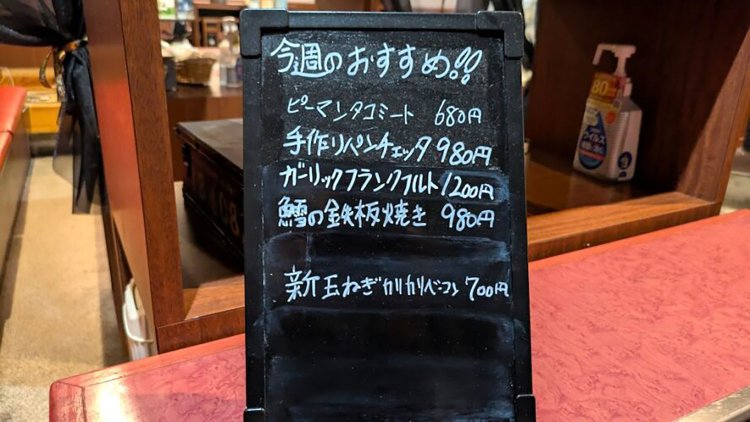 今週のおすすめ!!
ピーマンタコミート 680円
手作りパンチェッタ 980円
ガーリックフランクフルト 1200円
鱈の鉄板焼き 980円
新玉ねぎカリカリベーコン 700円
80
ウイルス